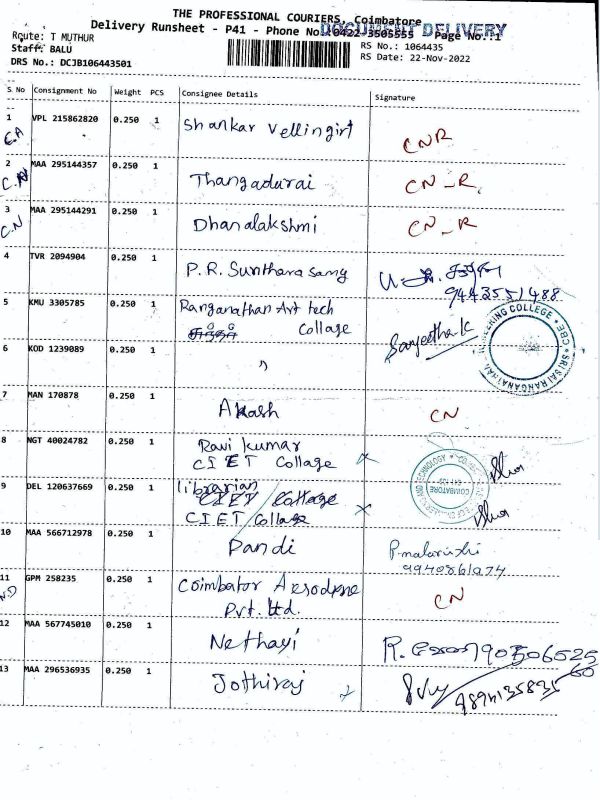 THE PROFESSIONAL COURIERS, Coimbatore
DOCUMENT DELIVERY
Delivery Runsheet - P41 - Phone No.:0422-3505555 Page No.:1
Route: T MUTHUR
RS No.: 1064435
Staff: BALU
RS Date: 22-Nov-2022
DRS No.: DCJB106443501
S. No Consignment No Weight PCS Consignee Details Signature
1 VPL 215862820 0.250 1 Shankar Vellingiri CNR
2 MAA 295144357 0.250 1 Thangadurai CN_R
3 MAA 295144291 0.250 1 Dhanalakshmi CN_R
C.N
4 TVR 2094904 0.250 1 P.R. Sunthara samy
9443551488
5 KMU 3305785 0.250 1 Ranganathan Art tech
Collage Sangeetha.K
6 KOD 1239089 0.250 1 "
7 MAN 170878 0.250 1 Akash CN
8 NGT 40024782 0.250 1 Ravi kumar
CIET Collage
9 DEL 120637669 0.250 1 librarian
CIET Collage
CIET Collage
10 MAA 566712978 0.250 1 Pandi
11 GPM 258235 0.250 1 Coimbator
N.D Pvt. Ltd. CN
12 MAA 567745010 0.250 1 Nethayi
13 MAA 296536935 0.250 1 Jothiraj